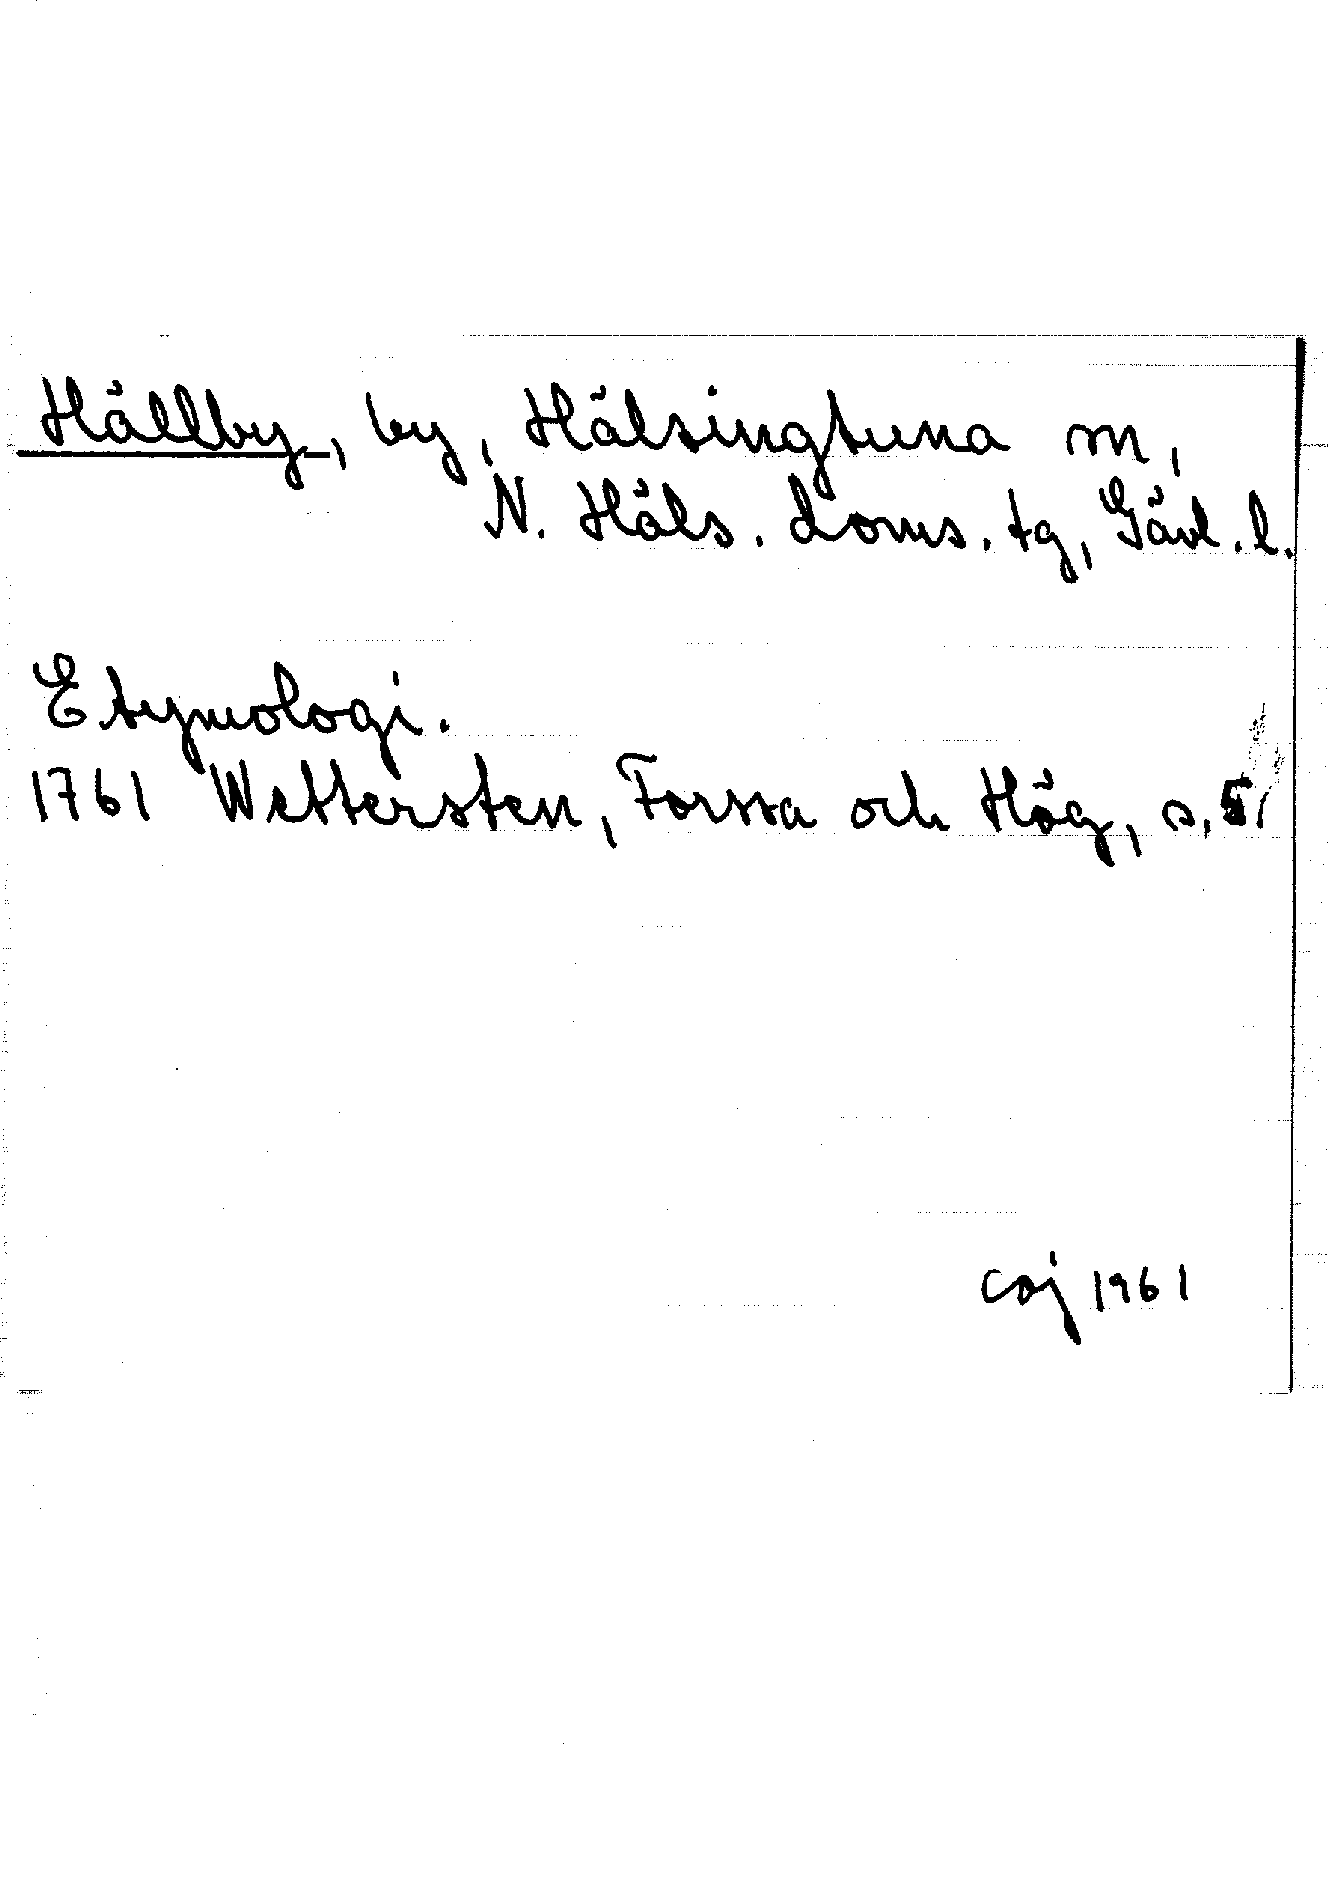 Hällby, by, Hälsingtuna sn,
N. Häls. doms. tg, Gävl. l.
Etymologi.
1761 Wettersten, Forssa och Hög, s. 5
coj 1961